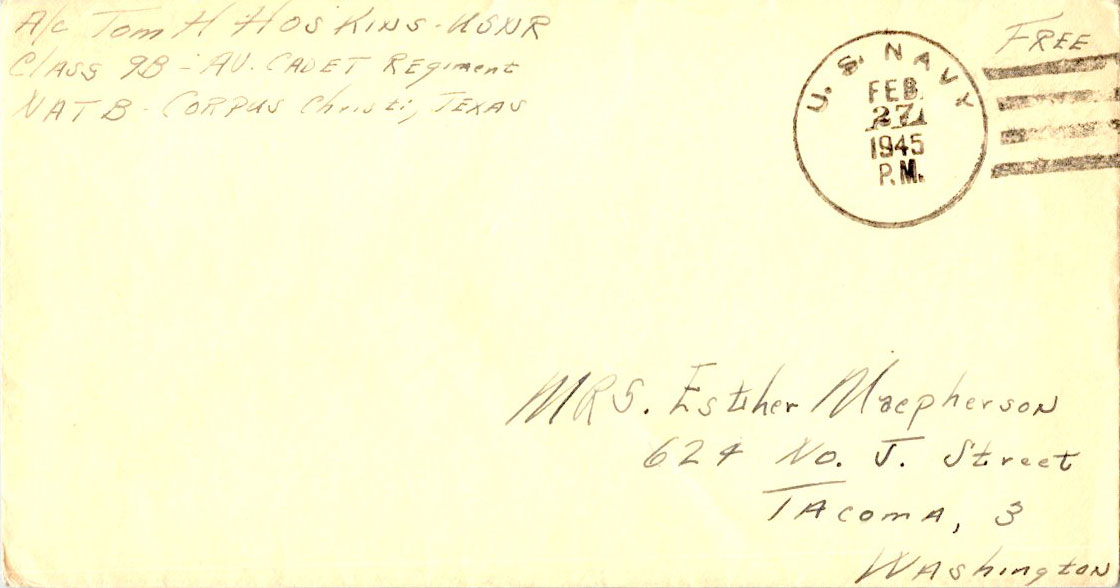 A/C Tom H Hoskins - USNR
Class 9B - AV. CADET Regiment
NATB - Corpus Christi, TEXAS
FREE
U.S. NAVY
FEB.
27
1945
P.M.
MRS. Esther Macpherson
624 No. J. Street
TACOMA, 3
WAshington